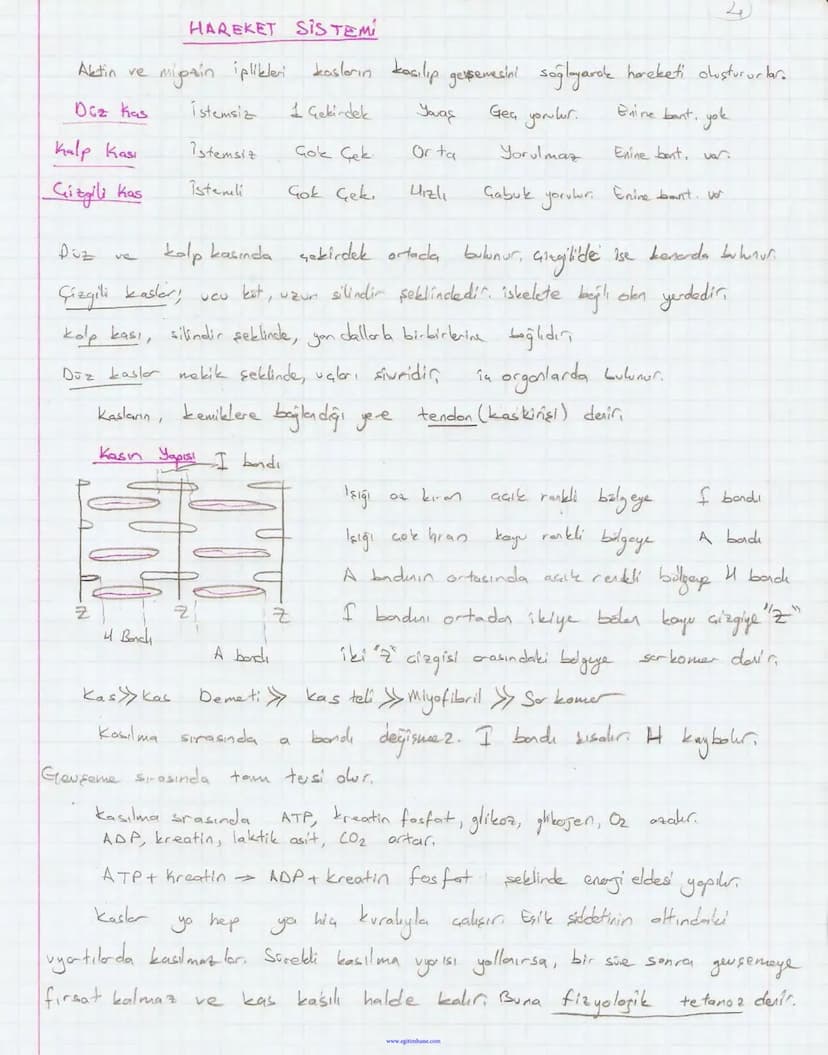 4
HAREKET SİSTEMİ
Aktin ve miyozin iplikleri kasların kasılıp gevşemesini sağlayarak hareketi oluştururlar.
Düz Kas İstemsiz 1 Çekirdek Yavaş Geç yorulur. Enine bant. yok
Kalp Kası İstemsiz Çok Çek. Orta Yorulmaz Enine bant. var.
Çizgili Kas İstemli Çok Çek. Hızlı Çabuk yorulur. Enine bant. var
Düz ve kalp kasında çekirdek ortada bulunur, Çizgili'de ise kenarda bulunur.
Çizgili kaslar; ucu küt, uzun silindir şeklindedir. iskelete bağlı olan yerdedir.
Kalp kası, silindir şeklinde, yan dallarla birbirlerine bağlıdır,
Düz kaslar mekik şeklinde, uçları sivridir, iç organlarda bulunur.
Kasların, kemiklere bağlandığı yere tendon (kaskirişi) denir,
Kasın Yapısı I bandı
Işığı az kıran açık renkli bölgeye I bandı
Işığı çok kıran koyu renkli bölgeye A bandı
A bandının ortasında açık renkli bölgeye H bandı
Z Z Z I bandını ortadan ikiye bölen koyu çizgiye "Z"
H Bandı
A bandı iki "Z" çizgisi arasındaki bölgeye sarkomer denir,
Kas >> Kas Demeti >> Kas teli >> Miyofibril >> Sarkomer
Kasılma sırasında a bandı değişmez. I bandı kısalır. H kaybolur.
Gevşeme sırasında tam tersi olur.
Kasılma sırasında ATP, kreatin fosfat, glikoz, glikojen, O2 azalır.
ADP, kreatin, laktik asit, CO2 artar.
ATP + Kreatin → ADP + kreatin fosfat şeklinde enerji eldesi yapılır.
Kaslar ya hep ya hiç kuralıyla çalışır. Eşik şiddetinin altındaki
uyartılarda kasılmazlar. Sürekli kasılma uyarısı yollanırsa, bir süre sonra gevşemeye
fırsat kalmaz ve kas kasılı halde kalır. Buna fizyolojik tetanoz denir.
www.egitimhane.com